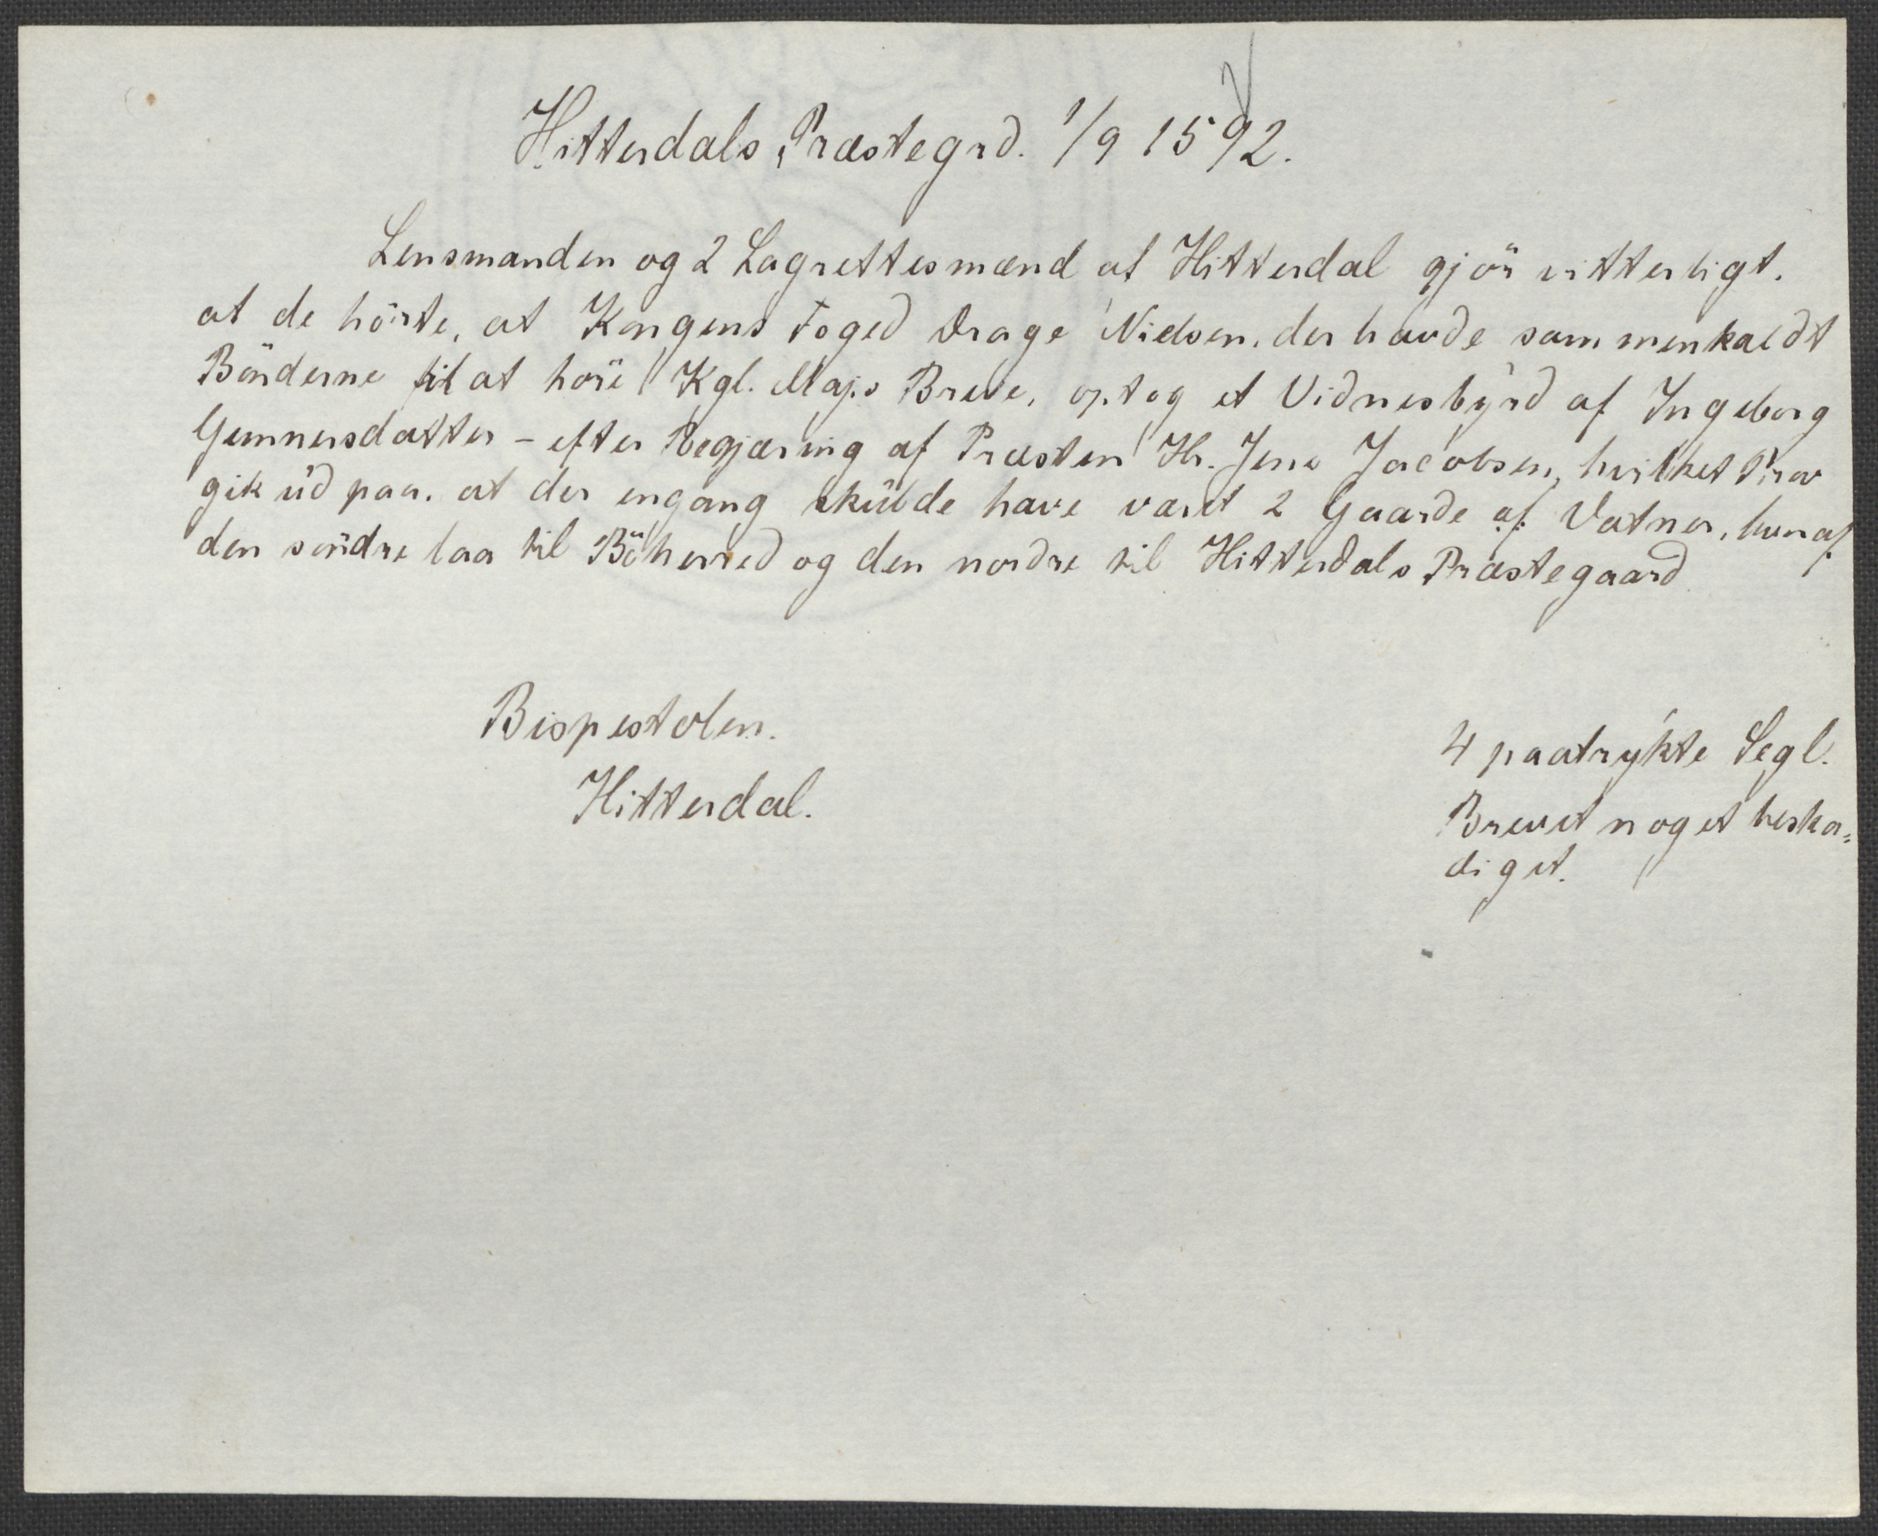 Hitterdals Præstegrd. 1/9 1592.
Lensmanden og 2 Lagrettesmænd at Hitterdal gjör vitterligt.
at de hörte, at Kongens Foged Drage Nielsen, der havde sammenkaldt
Bönderne til at höre Kgl. Majs Breve, optog et Vidnesbyrd af Ingeborg
Gunnersdatter - efter Begjæring af Præsten Hr. Jens Jacobsen, hvilket Prov
gik ud paa. at der engang skulde have været 2 Gaarde af Vatner, hvoraf
den söndre laa til Böherred og den nordre til Hitterdals Præstegaard
Bispestolen.
Hitterdal.
4 paatrykte Segl.
Brevet noget beska=
diget.